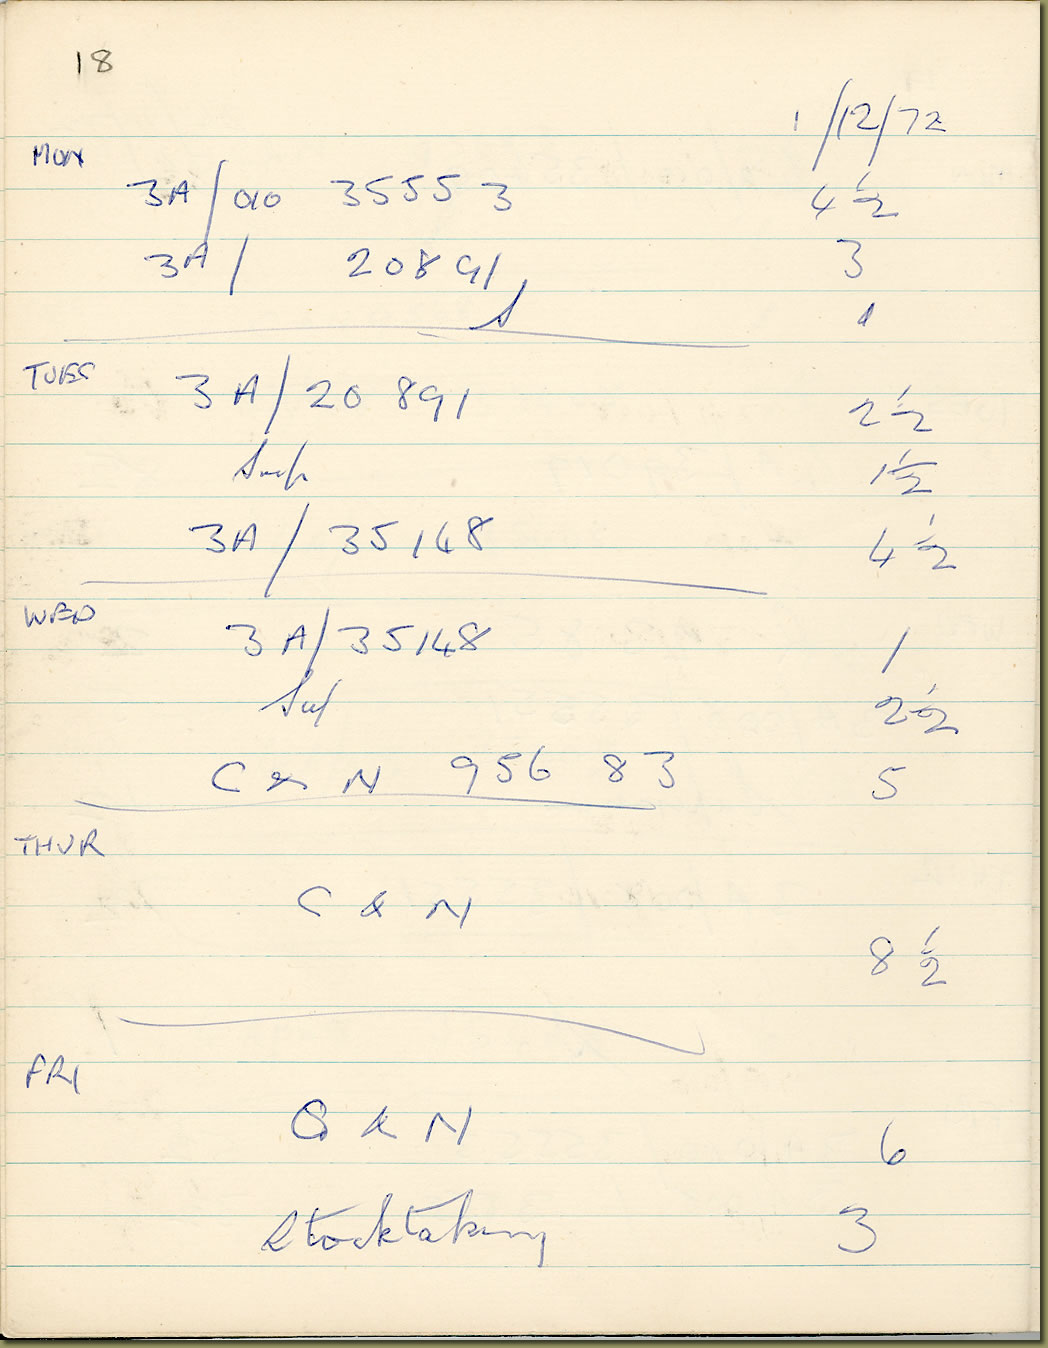 18
1/12/72
MON
3A/010 35553 4½
3A/ 20891 3
S 1
TUES 3A/20891 2½
Sup 1½
3A/35148 4½
WED
3A/35148 1
Sup 2½
C & N 956 83 5
THUR
C & N
8½
FRI
C & N 6
Stocktaking 3